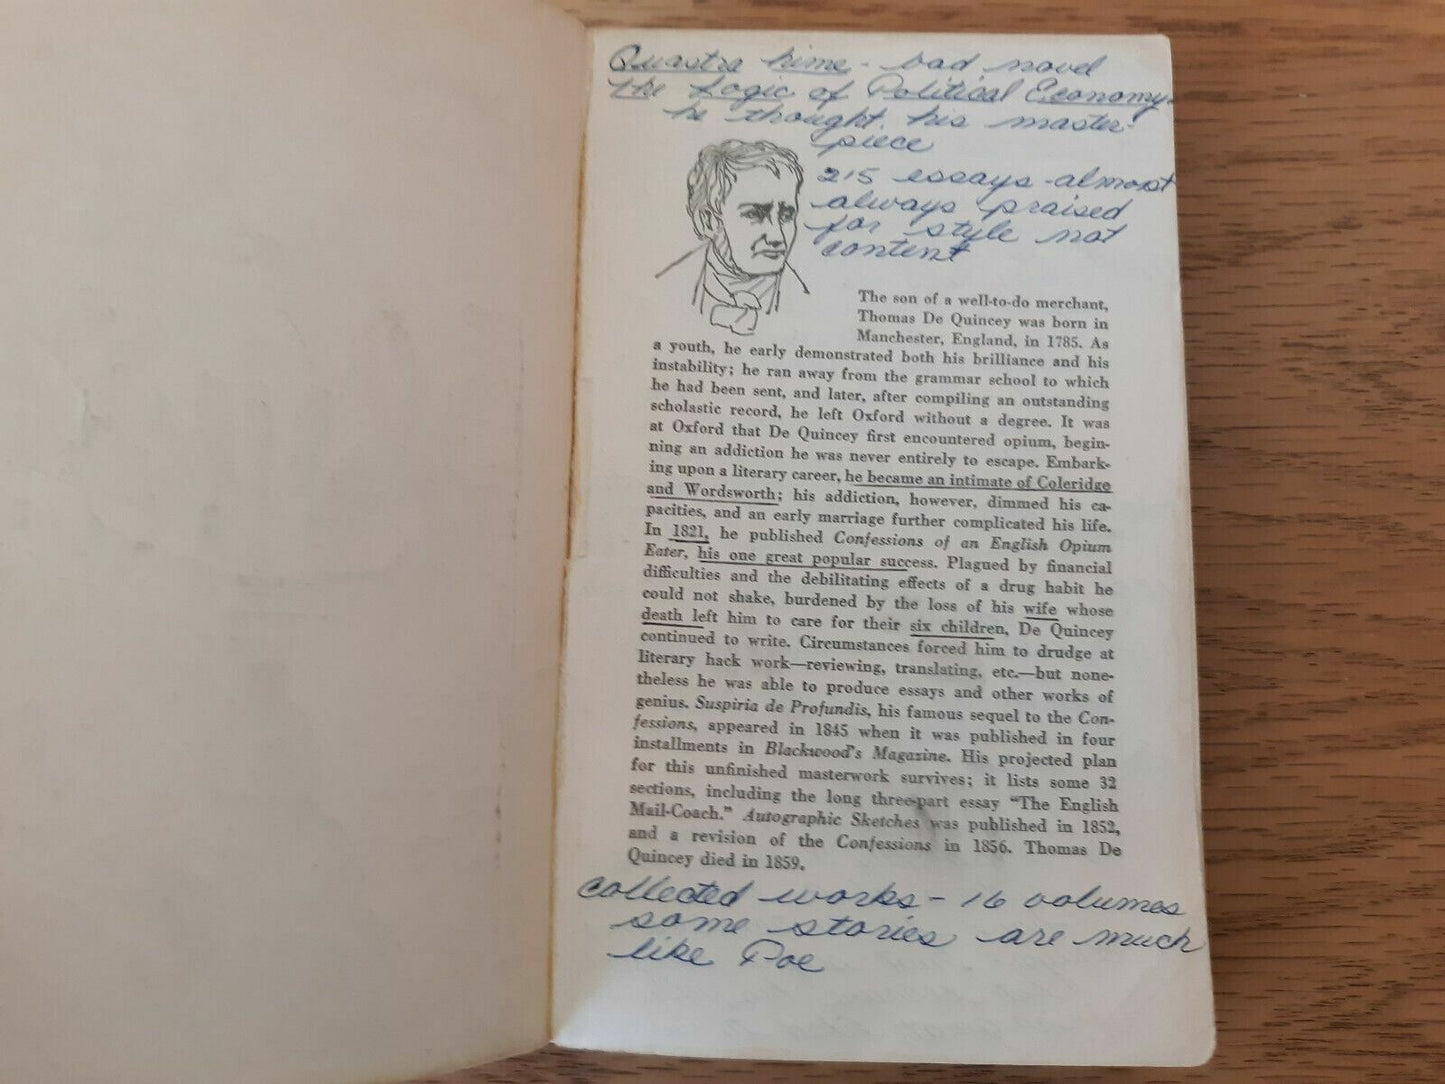 Quastra hime - bad novel
the Logic of Political Economy -
he thought his master-
piece
215 essays - almost
always praised
for style not
content
The son of a well-to-do merchant,
Thomas De Quincey was born in
Manchester, England, in 1785. As
a youth, he early demonstrated both his brilliance and his
instability; he ran away from the grammar school to which
he had been sent, and later, after compiling an outstanding
scholastic record, he left Oxford without a degree. It was
at Oxford that De Quincey first encountered opium, begin-
ning an addiction he was never entirely to escape. Embark-
ing upon a literary career, he became an intimate of Coleridge
and Wordsworth; his addiction, however, dimmed his ca-
pacities, and an early marriage further complicated his life.
In 1821, he published Confessions of an English Opium
Eater, his one great popular success. Plagued by financial
difficulties and the debilitating effects of a drug habit he
could not shake, burdened by the loss of his wife whose
death left him to care for their six children, De Quincey
continued to write. Circumstances forced him to drudge at
literary hack work—reviewing, translating, etc.—but none-
theless he was able to produce essays and other works of
genius. Suspiria de Profundis, his famous sequel to the Con-
fessions, appeared in 1845 when it was published in four
installments in Blackwood's Magazine. His projected plan
for this unfinished masterwork survives; it lists some 32
sections, including the long three-part essay “The English
Mail-Coach.” Autographic Sketches was published in 1852,
and a revision of the Confessions in 1856. Thomas De
Quincey died in 1859.
collected works - 16 volumes
some stories are much
like Poe